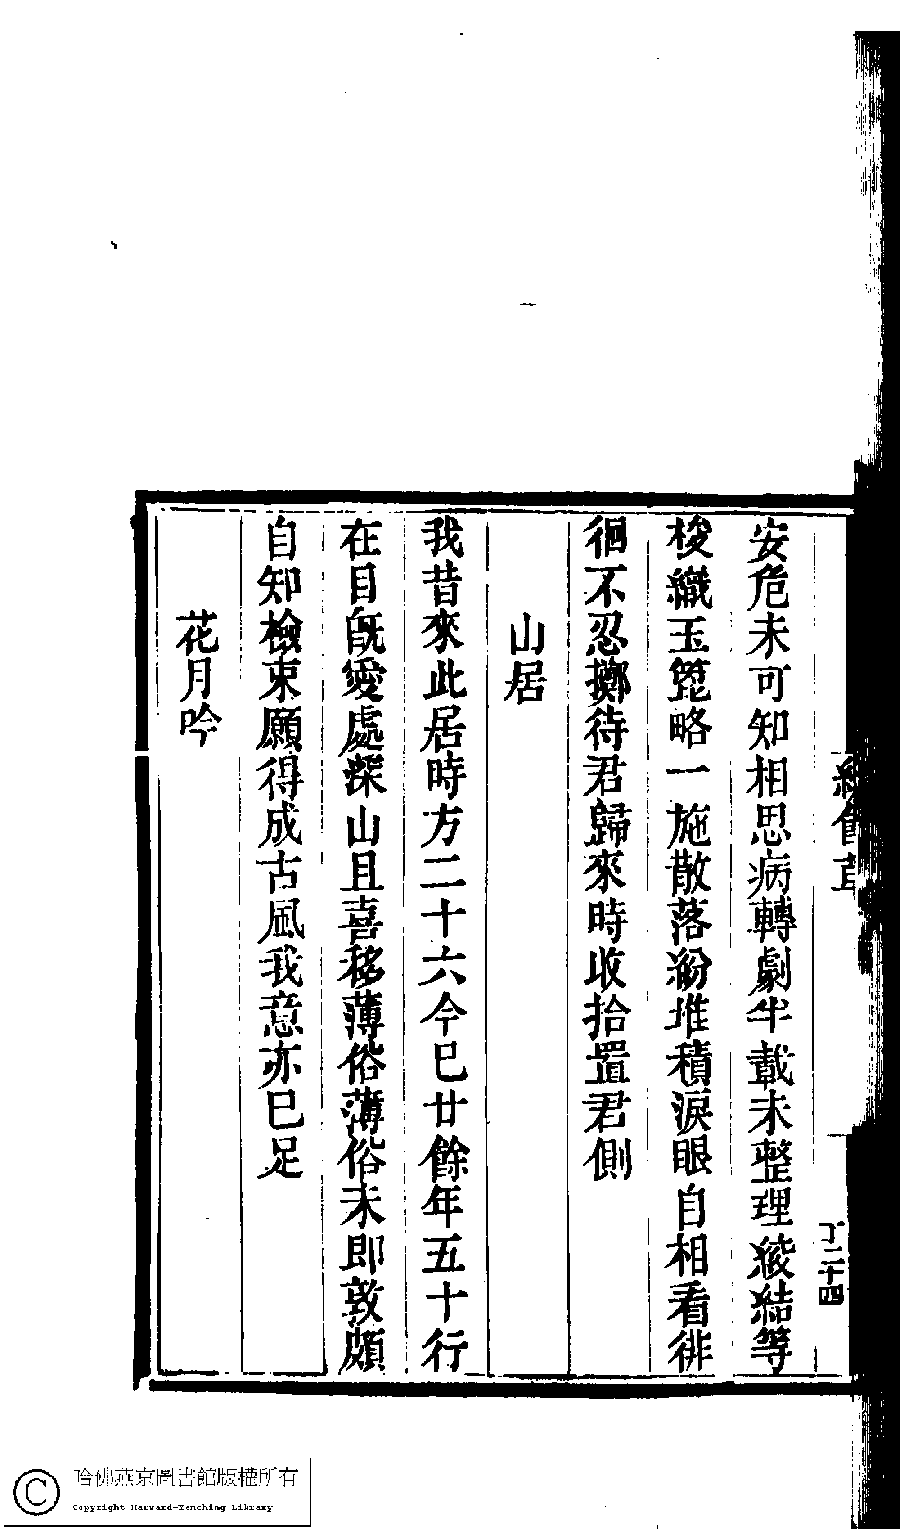 安危未可知相思病轉劇半載未整理緩結等
梭織玉篦略一施散落紛堆積淚眼自相看徘
徊不忍擲待君歸來時收拾置君側
山居
我昔來此居時方二十六今巳廿餘年五十行
在目旣愛處深山且喜移薄俗薄俗未即敦頗
自知檢束願得成古風我意亦巳足
花月吟
丁二十四
哈佛燕京圖書館版權所有
Copyright Harvard-Yenching Library